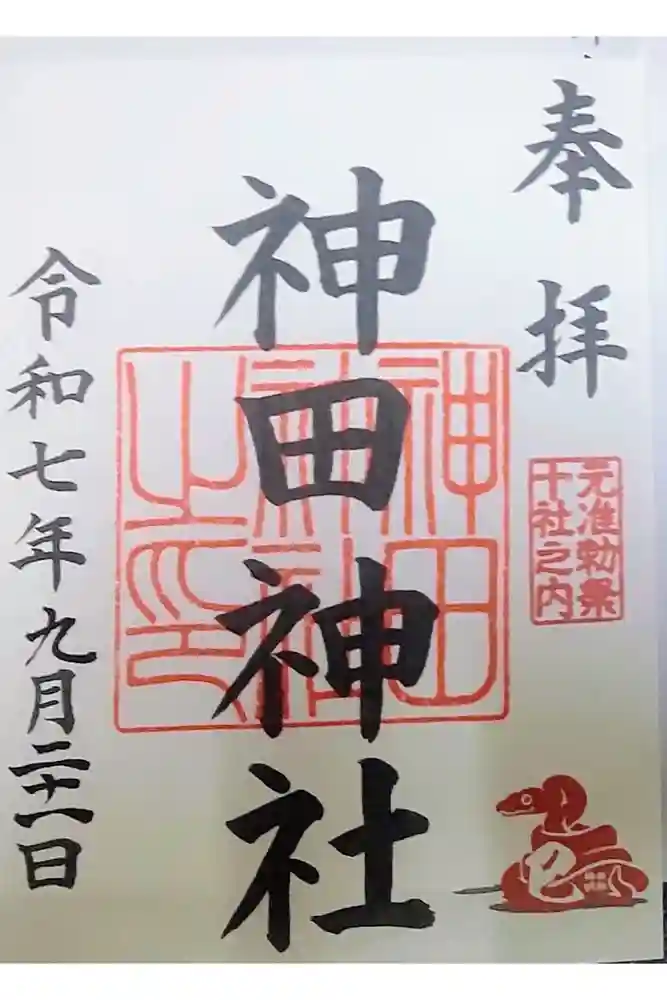 奉拝
元准勅祭
十社之内
神田神社
神田
神社
之印
巳
令和七年九月二十一日